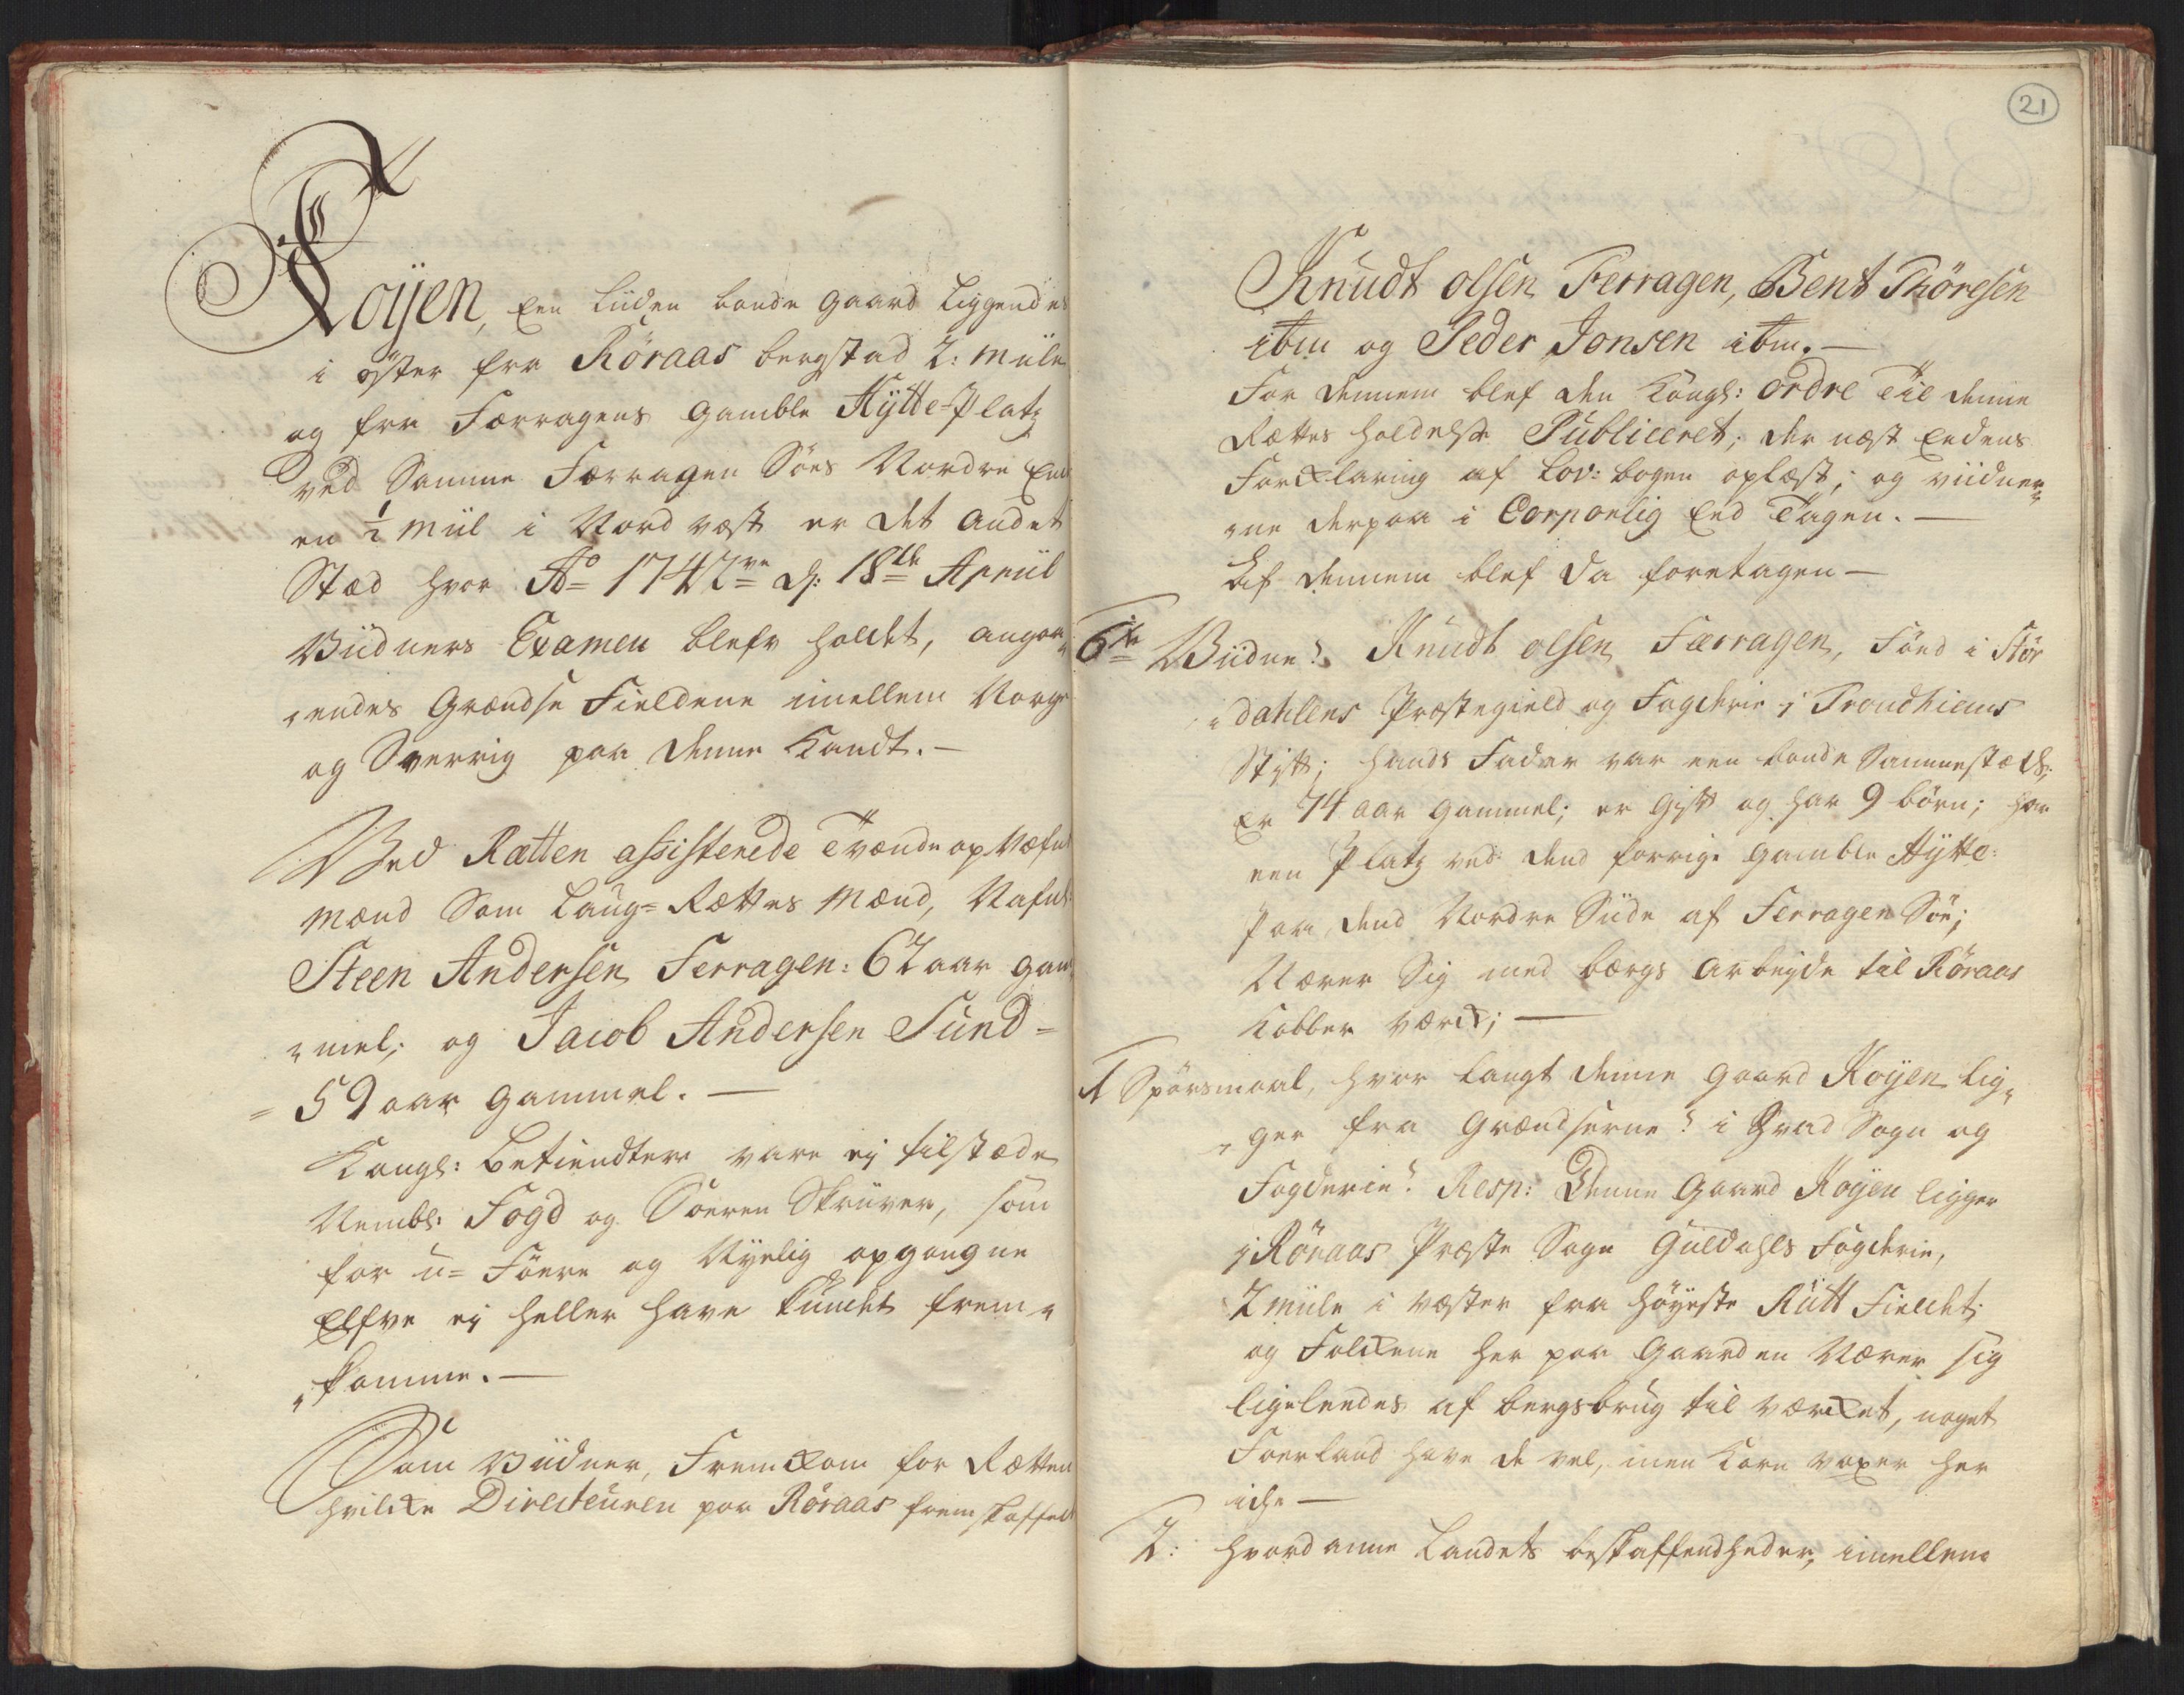 Koyen, een liiden bonde gaard liggendes
i øster fra Røraas bergstad 2: miile
og fra Færragens gamble Hytte-Platz
ved Samme Færragen Søes Nordre Ende
en ½ miil i Nord vest er det andet
Stæd hvor Ao 1742ve d: 18de Apriil
Viidners Examen blefv holdet, angaa-
rendes Grændse Fieldene imellem Norge
og Sverrig paa denne Kandt. —
Ved Rætten assisterede Tvende opNæfnte
Mænd Som Laug-Rættes Mænd, Nafnl:
Steen Andersen Ferragen: 62 aar gam-
mel; og Jacob Andersen Sund-
= 59 aar gammel. —
Kongl: Betiendtere vare ej tilstæde
Nembl: Fogd og Soeren Skriver, som
for u-Føere og Nyelig opgangne
Elfve ej heller have kundet frem-
komme. —
Som Viidner, Fremkom for Rætten
hvilke Directeuren paa Røraas fremskaffed
21
Knudt olsen Ferragen, Bent Thøresen
ibm og Peder Jonsen ibm. —
For dennem blef den Kongl: ordre Til denne
Rættes holdelse Publiceret; der næst Eedens
Forklaring af Lov: bogen oplæst; og viidner-
ne derpaa i Corporlig Eed Tagen. —
Af dennem blef da foretagen —
6te Viidne: Knudt olsen Færragen, Fød i Stør
dahlens Præstegield og Fogderie i Trondhiems
Stift; hands Fader var een bonde Sammestæds;
Er 74 aar gammel; er Gift og har 9 børn; har
een Platz ved dend forrige gamble Hytte:
paa dend Nordre Side af Ferragen Søe;
Nærer Sig med bergs arbeyde til Røraas
Kobber værk; —
1 Spørsmaal, hvor langt denne gaard Koyen lig-
ger fra Grændserne? i hvad Sogn og
Fogderie? Resp: Denne Gaard Koyen ligger
i Røraas Præste Sogn Guldahls Fogderie,
2 miile i væster fra høyeste Rutt Fieldet;
og Folkene her paa Gaarden Nærer sig
ligeleedes af bergsbrug til værket, noget
Foerland have de vel, men Korn voxer her
icke —
2: hvordanne Landets beskaffendheder, imellem